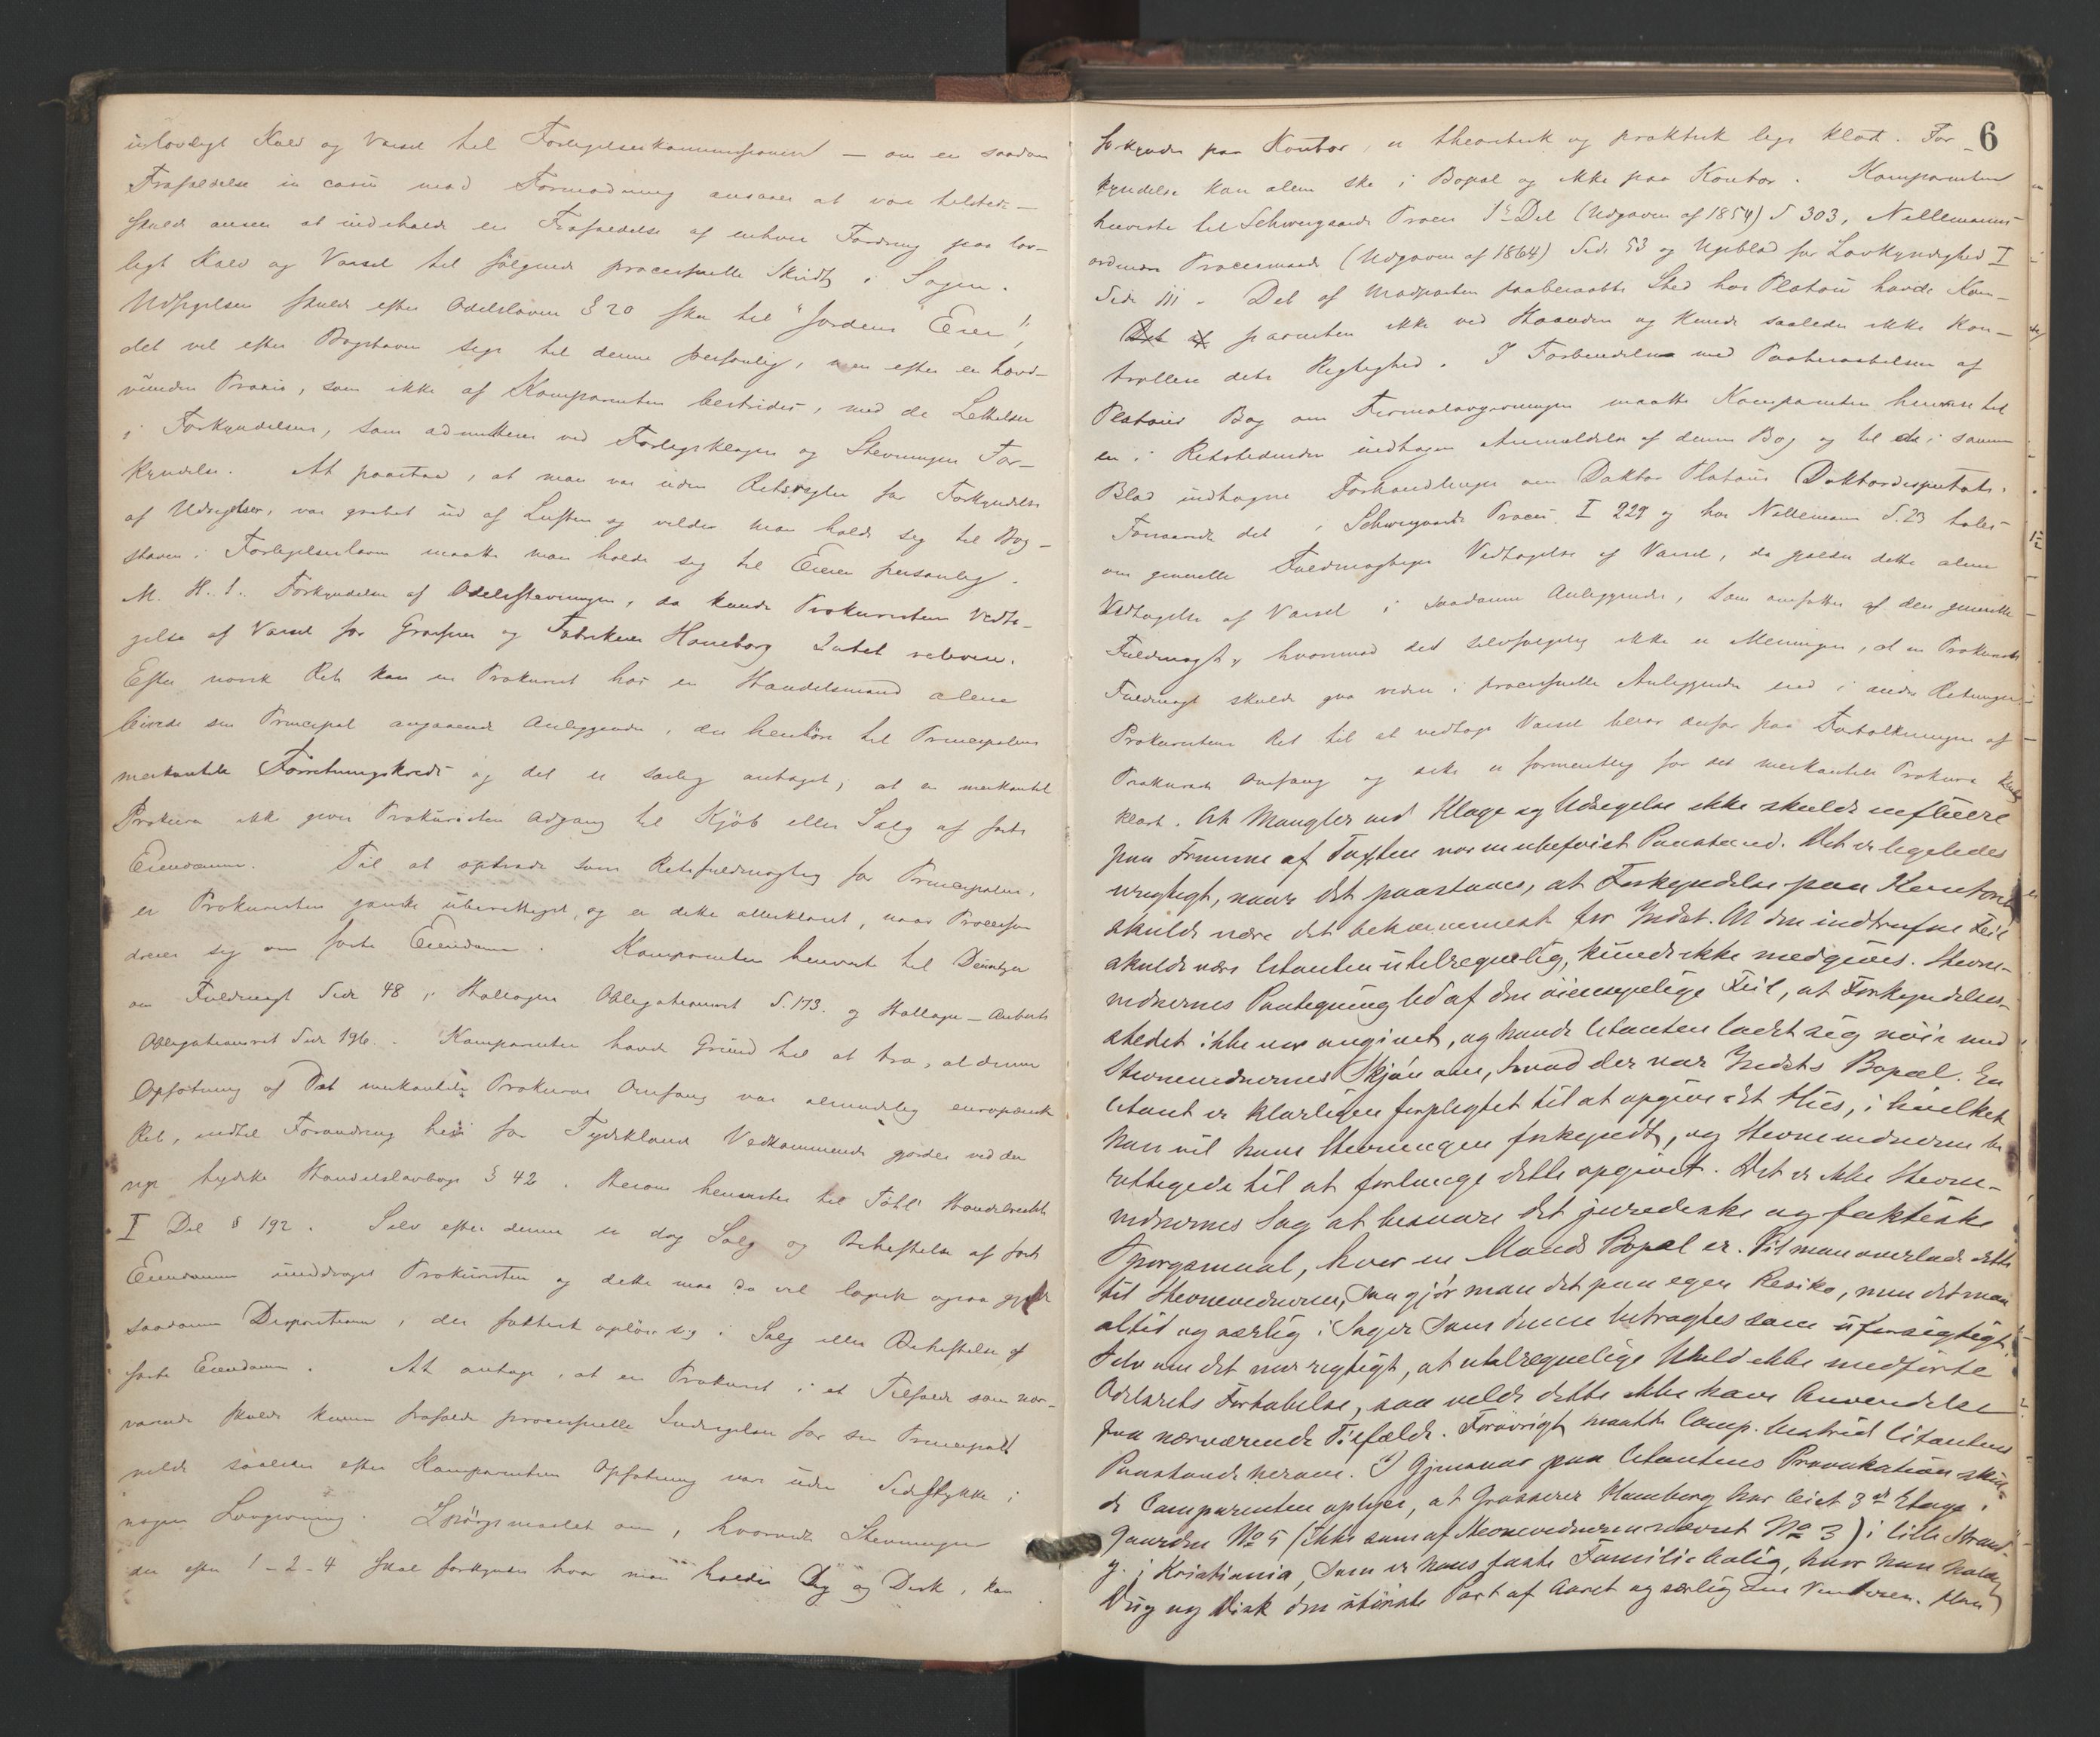 ulovligt Kald og Varsel til Forligelseskommissionen — om en saadan
Frafaldelse in casu mod Formodning ansaaes at være tilstede —
skulde ansees at indeholde en Frafaldelse af enhver Fordring paa lov-
ligt Kald og Varsel til følgende processuelle Skridt i Sagen.
Udsigelsen skulde efter Odelsloven § 20 ske til "Jordens Eier",
det vil efter Bogstaven sige til denne personlig, men efter en hævd-
vunden Praxis, som ikke af Komparenten bestrides, med de Lettelser
i Forkyndelsen, som admitteres ved Forligsklagers og Stevningers For-
kyndelse. At paastaa, at man var uden Retsregler for Forkyndelse
af Udsigelser, var grebet ud af Luften og vilde man holde sig til Bog-
staven i Forligelsesloven maatte man holde sig til Eieren personlig.
M. H. t. Forkyndelsen af Odelsstevningen, da kunde Prokuristens Vedta-
gelse af Varsel for Grosserer og Fabrikeier Honeborg Intet relevere.
Efter norsk Ret kan en Prokurist hos en Handelsmand alene
binde sin Principal angaaende Anliggender, der henhøre til Principalens
merkantile Forretningskreds og det er særlig antaget, at en merkantil
Prokura ikke giver Prokuristen Adgang til Kjøb eller Salg af faste
Eiendomme. Til at optræde som Retsfuldmægtig for Principalen,
er Prokuristen ganske uberettiget, og er dette allerklarest, naar Processen
dreier sig om faste Eiendomme. Komparenten henviste til Deuntzer
om Fuldmagt Side 48, Hallagers Obligationsret S. 173. og Hallager-Auberts
Obligationsret Side 196. Komparenten havde Grund til at tro, at denne
Opfatning af Det merkantile Prokuras Omfang var almindelig europæisk
Ret, indtil Forandring heri for Tydsklands Vedkommende gjordes ved den
nye tydske Handelslovbogs § 42. Herom henvistes til Töhls Handelsrecht
I Del § 192. Selv efter denne er dog Salg og Behæftelse af faste
Eiendomme unddraget Prokuristen og dette maa da vel logisk ogsaa gjælde
saadanne Dispositioner, der faktisk opløse sig i Salg eller Behæftelse af
faste Eiendomme. At antage, at en Prokurist i et Tilfælde som nær-
værende skulde kunne frafalde processuelle Indsigelser for sin Principal
vilde saaledes efter Komparentens Opfatning være uden Sidestykke i
nogen Lovgivning. Spørgsmaalet om, hvorvidt Stevninger
der efter 1-2-4 skal forkyndes hvor man holder Dug og Disk, kan
6
forkyndes paa Kontor, er theoretisk og praktisk lige klart. For-
kyndelse kan alene ske i Bopæl og ikke paa Kontor. Komparenten
henviste til Schweigaards Proces 1ste Del (Udgaven af 1854) S 303, Nellemanns
ordinære Procesmaade (Udgaven af 1864) Side 53 og Ugeblad for Lovkyndighed I
Side 111. Det af Modparten paaberaabte Sted hos Platou havde Kom-
parenten ikke ved Haanden og kunde saaledes ikke kon-
trollere dets Rigtighed. I Forbindelse med Paaberaabelsen af
Platous Bog om maatte Komparenten henvise til
en i Retstidende indtagen Anmeldelse af denne Bog og til de i samme
Blad indtagne Forhandlinger om Doktor Platous Doktordisputats.
Forsaavidt det i Schweigaards Proces I 229 og hos Nellemann S. 23 tales
om generelle Fuldmægtiges Vedtagelse af Varsel, da gjælder dette alene
Vedtagelse af Varsel i saadanne Anliggender, som omfattes af den generelle
Fuldmagt, hvormed det selvfølgelig ikke er Meningen, at en Prokurists
Fuldmagt skulde gaa videre i processuelle Anliggender end i andre Retninger.
Prokuristens Ret til at vedtage Varsel beror derfor paa Fortolkningen af
Prokuras Omfang og dette er formentlig for det merkantile Prokura
klart. At Mangler ved Klage og Udsigelse ikke skulde influere
paa Fremme af Taxten var en ubeføiet Paastand. Det er ligeledes
urigtigt, naar det paastaaes, at Forkyndelse paa Kontoret
skulde være det bekvemmest for Indst. At den indtrufne Feil
skulde være Citanten utilregnelig, kunde ikke medgives. Stevne-
vidnernes Paategning led af den øiensynlige Feil, at Forkyndelses-
stedet ikke var angivet, og havde Citanten ladet sig nøie med
Stevnevidnernes Skjøn om, hvad der var Indsts Bopæl. En
Citant er klarligen forpligtet til at opgive det Hus, i hvilket
han vil have Stevningen forkyndt, og Stevnevidnerne be-
rettigede til at forlange dette opgivet. Det er ikke Stevne-
vidnernes Sag at besvare det juridiske og faktiske
Spørgsmaal, hvor en Mands Bopæl er. Vil man overlade dette
til Stevnevidnerne, saa gjør man det paa egen Resiko, men det maa
altid og særlig i Sager som denne betragtes som uforsigtigt.
Selv om det var rigtigt, at utilregnelige Uheld ikke medførte
Odelsrets Fortabelse, saa vilde dette ikke have Anvendelse
paa nærværende Tilfælde. Forøvrigt maatte Comp. bestride Citantens
Paastande herom. I Gjensvar paa Citantens Provokation skul-
de Comparenten oplyse, at Grosserer Honeborg har leiet 3die Etage i
Gaarden No 5 (ikke som af Stevnevidnerne nævnt No 3) i lille Strand-
g. i Kristiania, som er hans faste Familiebolig, hvor han holder
Dug og Disk den største Part af Aaret og særlig om Vinteren. Han